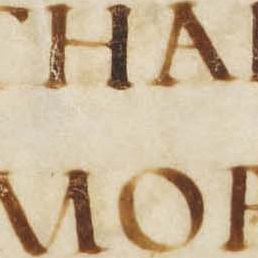 THA
MO